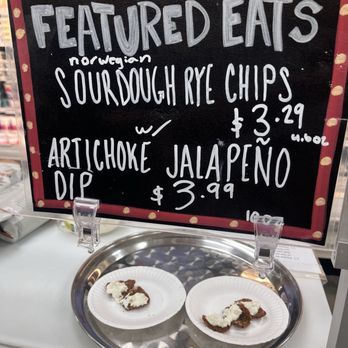 FEATURED EATS
norwegian
SOURDOUGH RYE CHIPS
$3.29
w/
ARTICHOKE JALAPEÑO
DIP $3.99